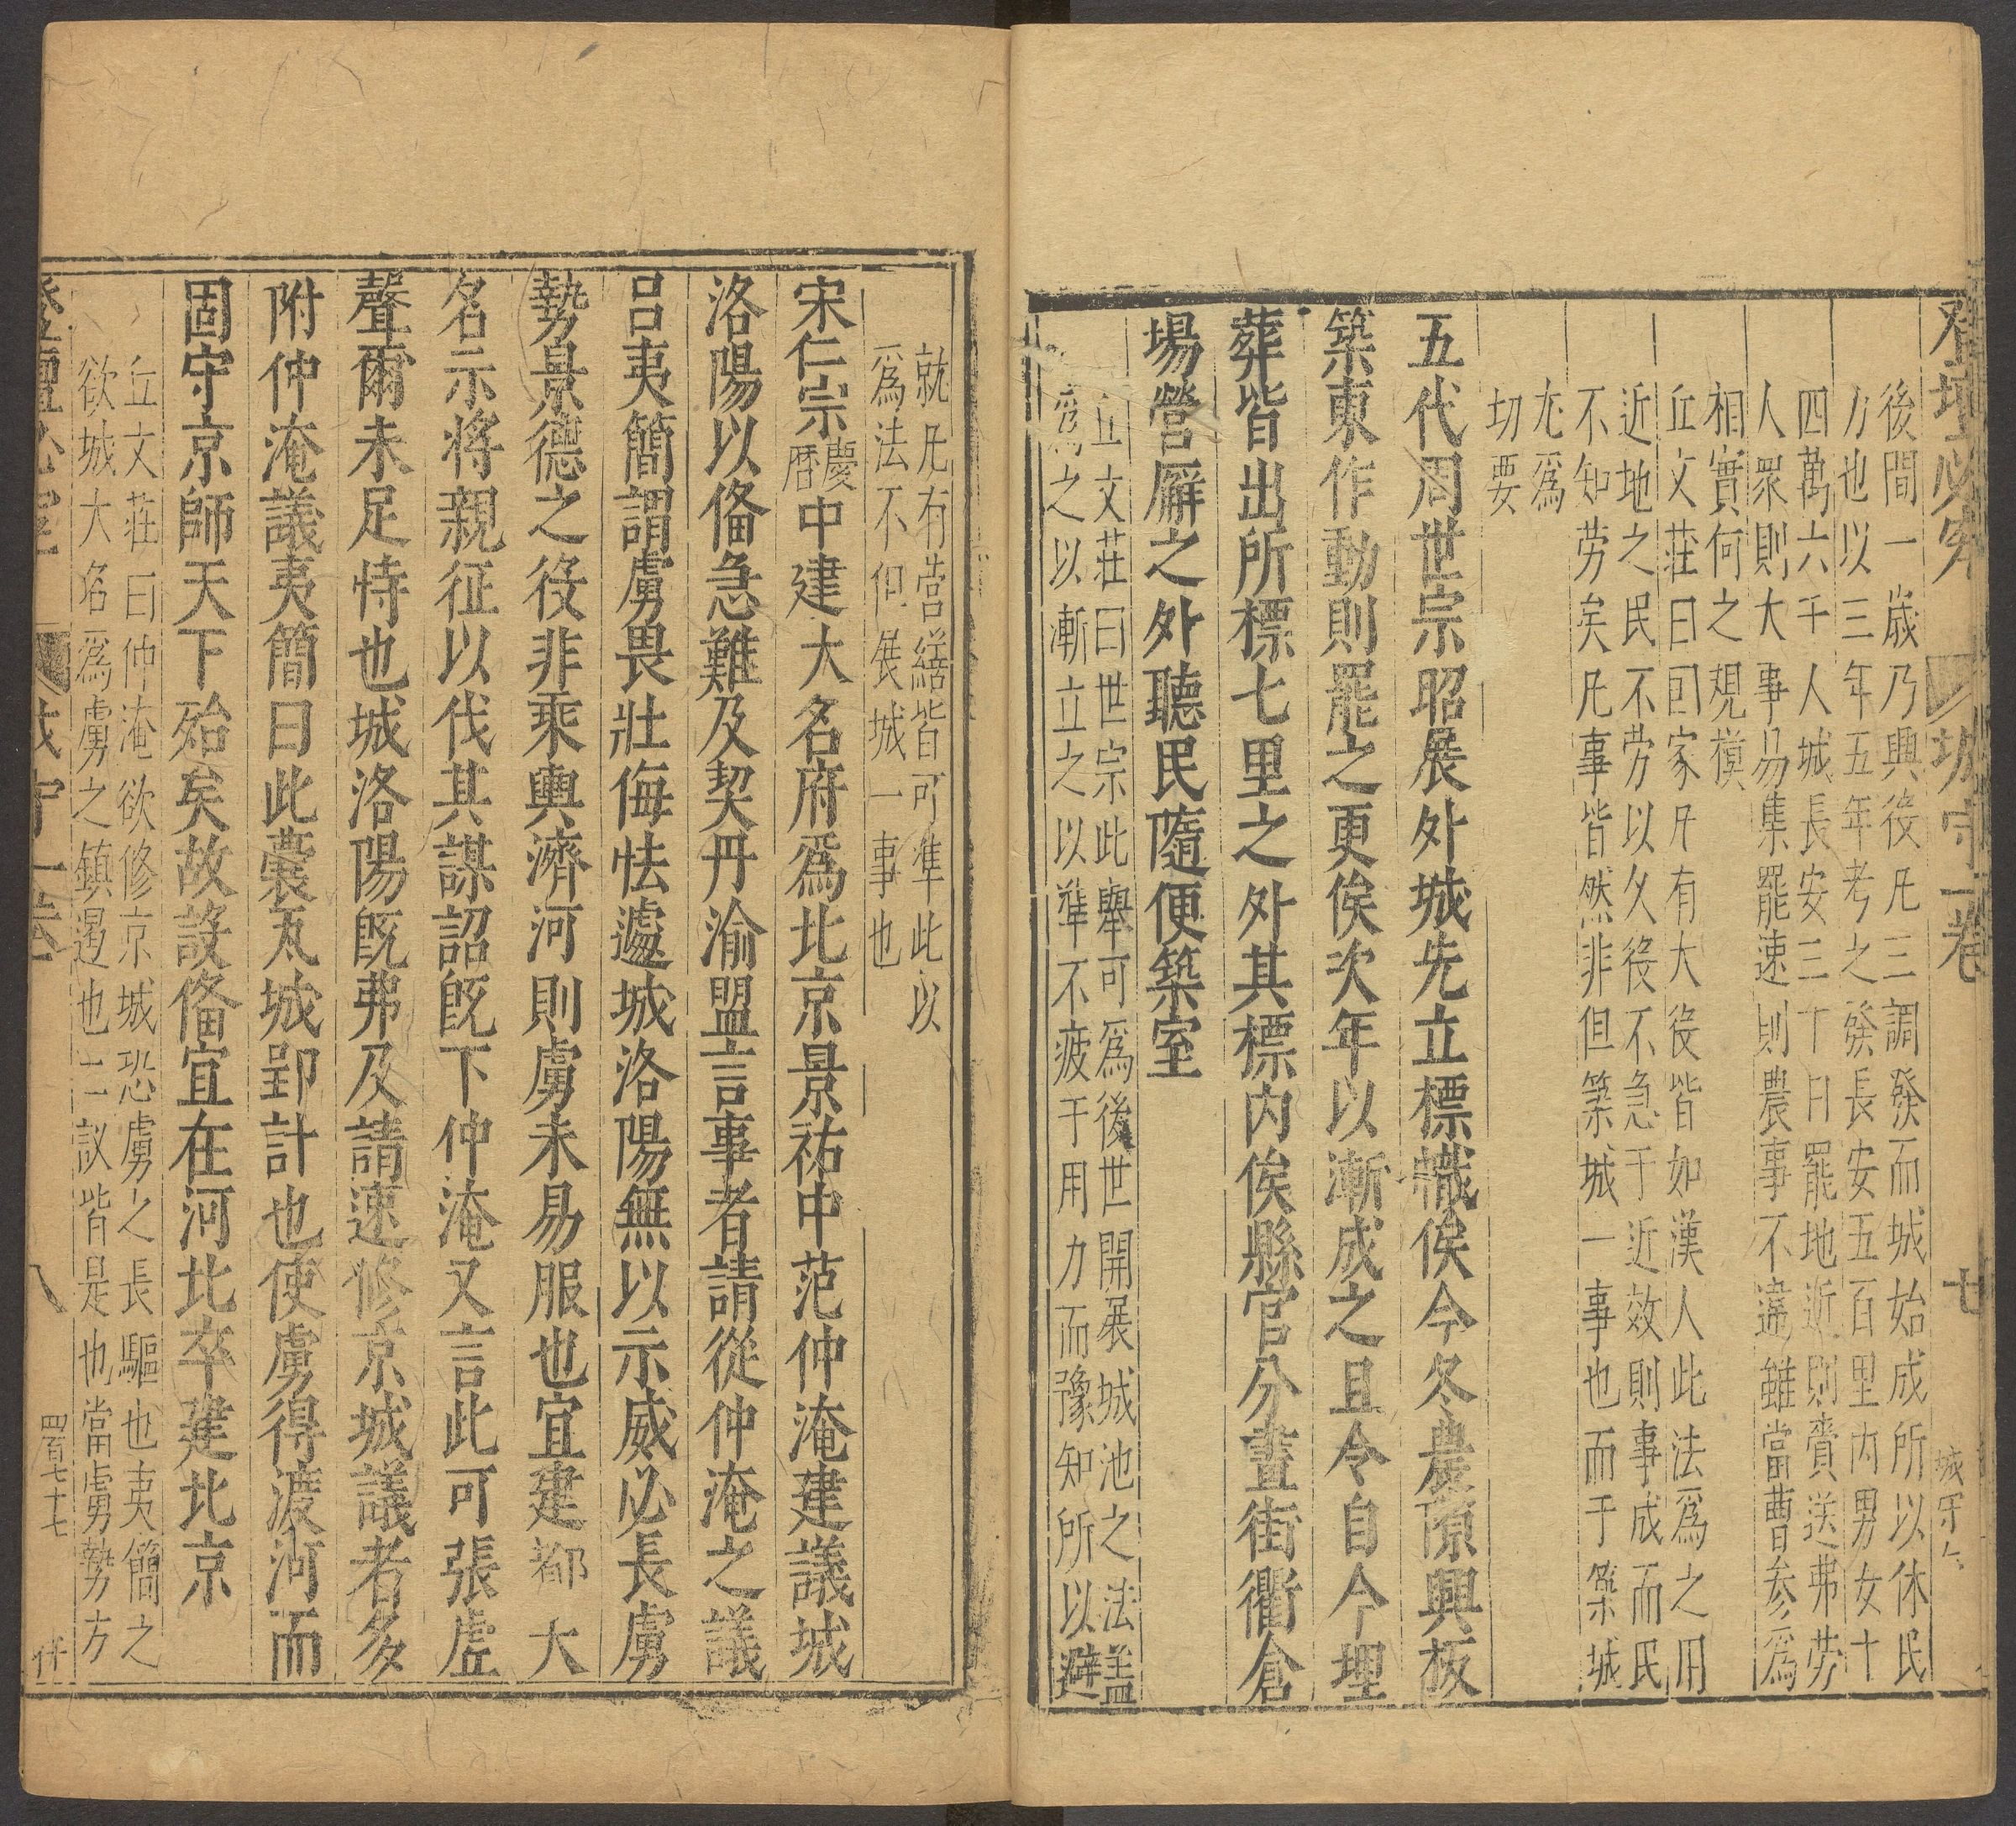 登壇必究　城守一卷　七
後間一歲乃興役凡三調發而城始成所以休民
力也以三年五年考之發長安五百里內男女十
四萬六千人城長安三十日罷地近則賫送弗勞
人眾則大事易集罷速則農事不違雖當曹参爲
相實何之規模
丘文莊曰囯家凡有大役皆如漢人此法爲之用
近地之民不劳以久役不急于近效則事成而民
不知劳矣凡事皆然非但築城一事也而于築城
尤爲
切要
五代周世宗昭展外城先立標幟俟今冬農隙興板
築東作動則罷之更俟次年以漸成之且令自今埋
葬皆出所標七里之外其標内俟縣官分畫街衢倉
場營廨之外聽民隨便築室
丘文莊曰世宗此舉可爲後世開展城池之法盖
爲之以漸立之以準不疲于用力而豫知所以避
就凡有营繕皆可準此以
爲法不但展城一事也
宋仁宗慶曆中建大名府爲北京景祐中范仲淹建議城
洛陽以俻急難及契丹渝盟言事者請從仲淹之議
吕夷簡謂虜畏壯侮怯遽城洛陽無以示威必長虜
勢景德之役非乘輿濟河則虜未易服也宜建都大
名示将親征以伐其謀詔旣下仲淹又言此可張虛
聲爾未足恃也城洛陽旣弗及請速修京城議者多
附仲淹議夷簡曰此囊瓦城郢計也使虜得渡河而
固守京師天下殆矣故設俻宜在河北卒建北京
丘文莊曰仲淹欲修京城恐虜之長驅也夷簡之
欲城大名爲虜之鎮遏也二議皆是也當虜勢方
登壇必究　城守一卷　八　四百七十七